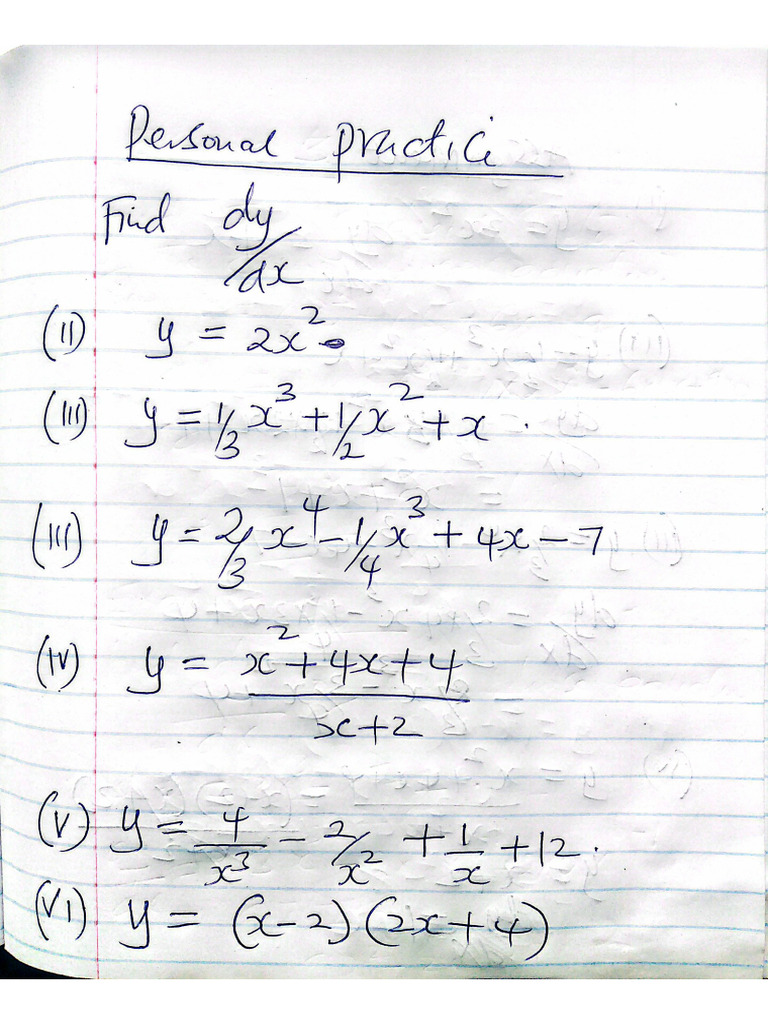 Personal practice
Find dy/dx
(II) y = 2x²
(III) y = 1/3 x³ + 1/2 x² + x .
(III) y = 2/3 x⁴ - 1/4 x³ + 4x - 7
(IV) y = x² + 4x + 4
x + 2
(V) y = 4/x³ - 2/x² + 1/x + 12.
(VI) y = (x-2)(2x+4)